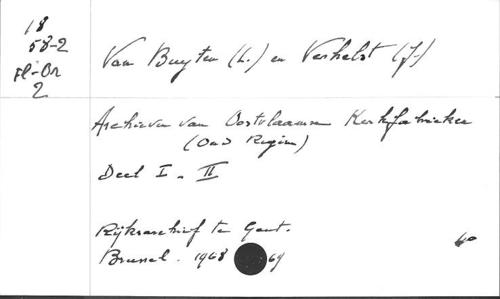 18
58-2
Fl-Or
2
Van Buyten (L.) en Verhelst (J.)
Archieven van Oostvlaamse Kerkfabrieken
(Oud Regiem)
Deel I - II
Rijksarchief te Gent.
Brussel. 1968 69
40